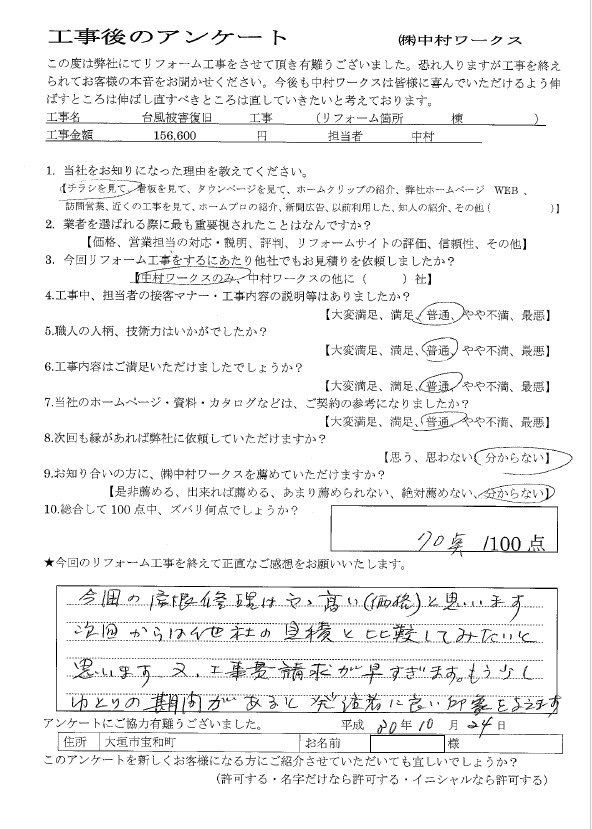 工事後のアンケート ㈱中村ワークス
この度は弊社にてリフォーム工事をさせて頂き有難うございました。恐れ入りますが工事を終え
られてお客様の本音をお聞かせください。今後も中村ワークスは皆様に喜んでいただけるよう伸
ばすところは伸ばし直すべきところは直していきたいと考えております。
工事名 台風被害復旧 工事 (リフォーム箇所 棟 )
工事金額 156,600 円 担当者 中村
1. 当社をお知りになった理由を教えてください。
【チラシを見て、看板を見て、タウンページを見て、ホームクリップの紹介、弊社ホームページ WEB 、
訪問営業、近くの工事を見て、ホームプロの紹介、新聞広告、以前利用した、知人の紹介、その他( )】
2. 業者を選ばれる際に最も重要視されたことはなんですか？
【価格、営業担当の対応・説明、評判、リフォームサイトの評価、信頼性、その他】
3. 今回リフォーム工事をするにあたり他社でもお見積りを依頼しましたか？
【中村ワークスのみ、中村ワークスの他に( )社】
4.工事中、担当者の接客マナー・工事内容の説明等はありましたか？
【大変満足、満足、普通、やや不満、最悪】
5.職人の人柄、技術力はいかがでしたか？
【大変満足、満足、普通、やや不満、最悪】
6.工事内容はご満足いただけましたでしょうか？
【大変満足、満足、普通、やや不満、最悪】
7.当社のホームページ・資料・カタログなどは、ご契約の参考になりましたか？
【大変満足、満足、普通、やや不満、最悪】
8.次回も縁があれば弊社に依頼していただけますか？
【思う、思わない、分からない】
9.お知り合いの方に、㈱中村ワークスを薦めていただけますか？
【是非薦める、出来れば薦める、あまり薦められない、絶対薦めない、分からない】
10.総合して100点中、ズバリ何点でしょうか？
70点 /100点
★今回のリフォーム工事を終えて正直なご感想をお願いいたします。
今回の屋根修理はやゝ高い(価格)と思います
次回からは他社の見積と比較してみたいと
思います 又、工事費請求が早すぎます。もう少し
ゆとりの期間があると発注者に良い印象を与えます
アンケートにご協力有難うございました。 平成 30年10月24日
住所 大垣市宝和町 お名前 様
このアンケートを新しくお客様になる方にご紹介させていただいても宜しいでしょうか？
(許可する・名字だけなら許可する・イニシャルなら許可する)